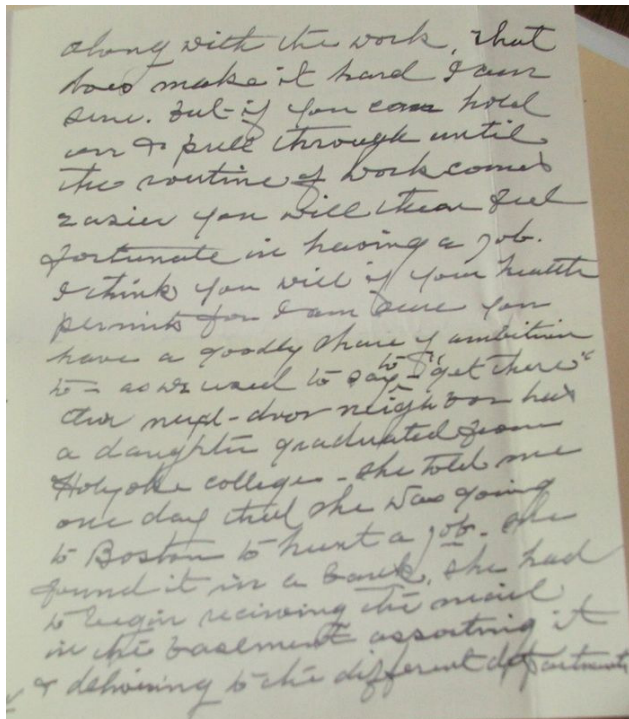 along with the work, that
does make it hard I am
sure. But if you can hold
on & pull through until
the routine of work comes
easier you will then feel
fortunate in having a job.
I think you will if your health
permits for I am sure you
have a goodly share of ambition
to - as we used to say - to "get there"
Our next-door neighbor has
a daughter graduated from
Holyoke college - she told me
one day that she was going
to Boston to hunt a job. She
found it in a bank, she had
to begin reciving the mail
in the basement assorting it
& delivering to the different departments